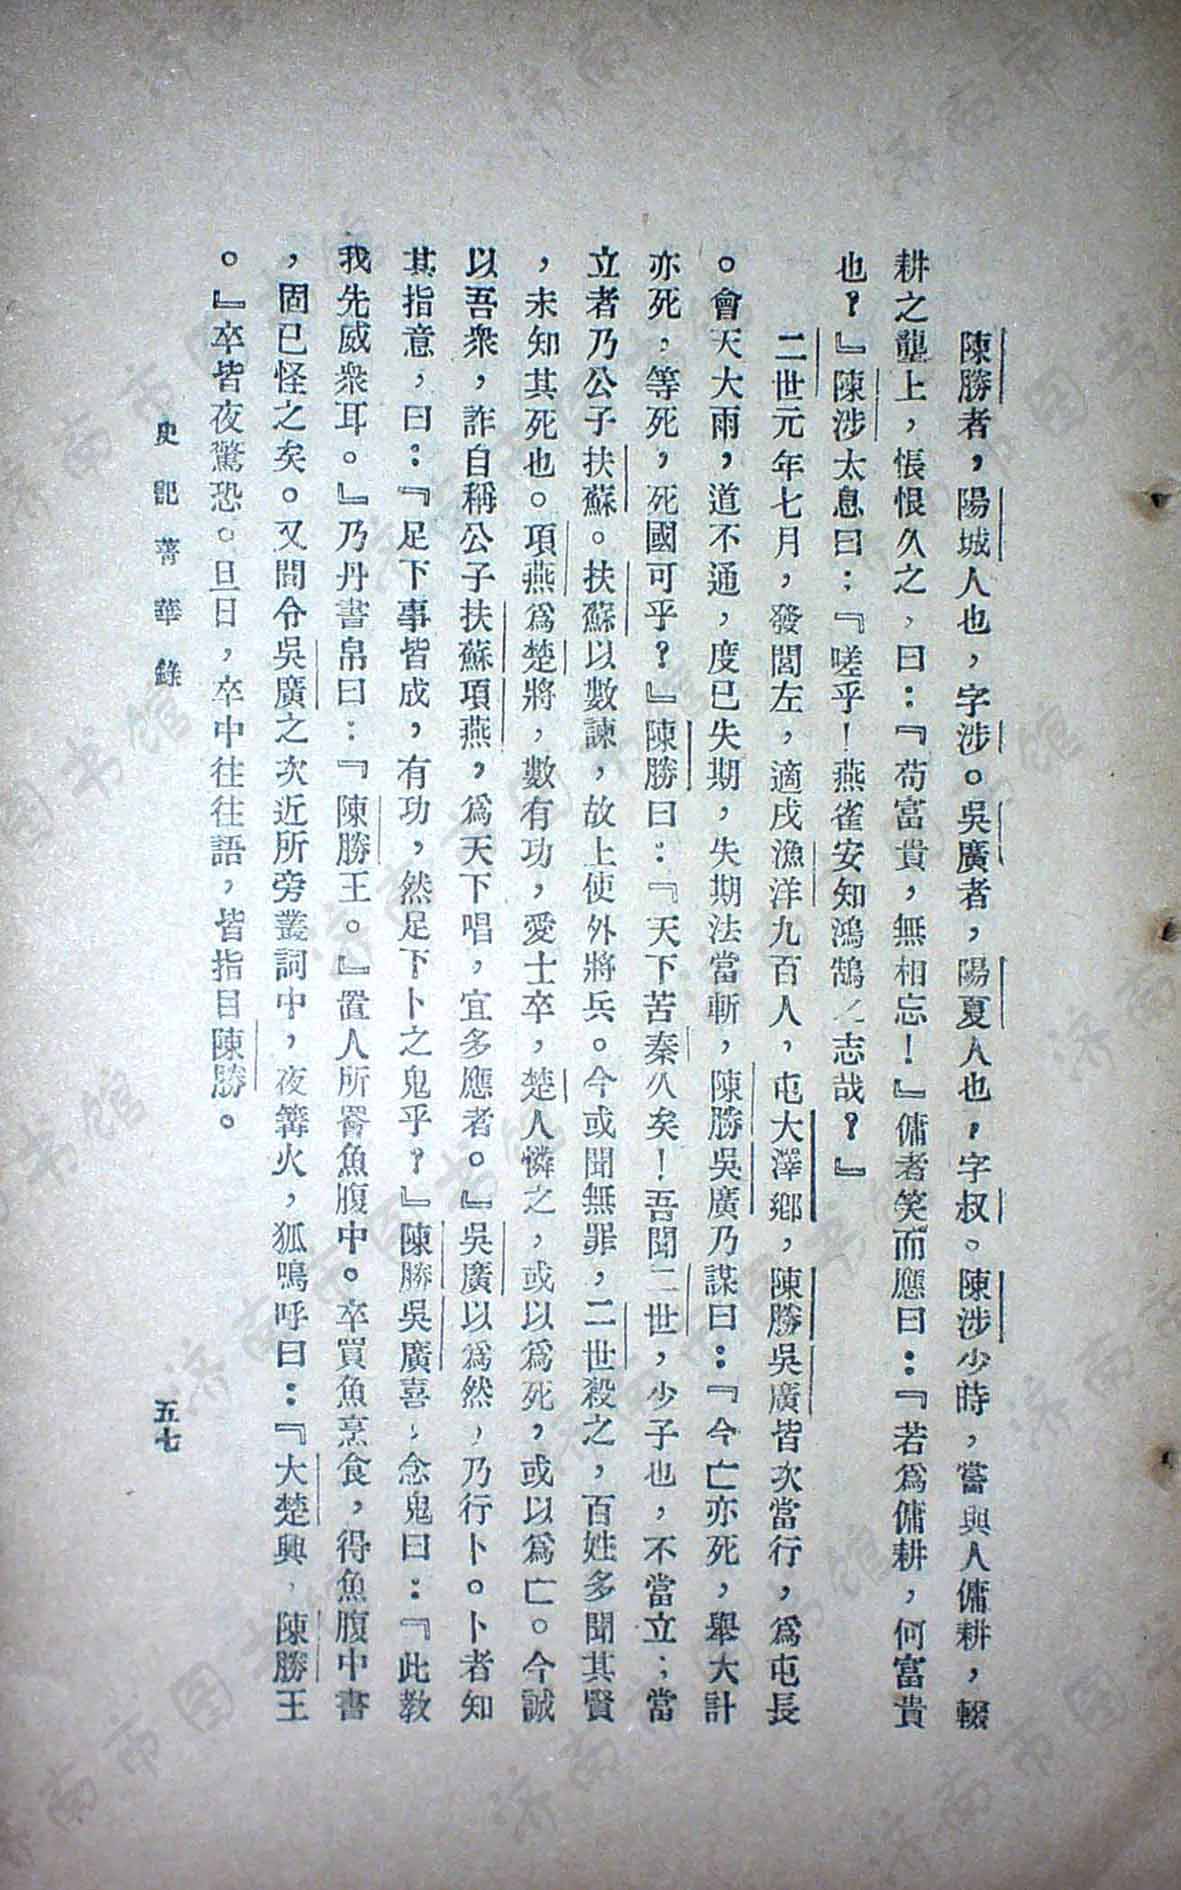 陳勝者，陽城人也，字涉。吳廣者，陽夏人也，字叔。陳涉少時，嘗與人傭耕，輟
耕之壟上，悵恨久之，曰：『苟富貴，無相忘！』傭者笑而應曰：『若爲傭耕，何富貴
也？』陳涉太息曰：『嗟乎！燕雀安知鴻鵠之志哉？』
二世元年七月，發閭左，適戍漁洋九百人，屯大澤鄉，陳勝吳廣皆次當行，爲屯長
。會天大雨，道不通，度已失期，失期法當斬，陳勝吳廣乃謀曰：『今亡亦死，舉大計
亦死，等死，死國可乎？』陳勝曰：『天下苦秦久矣！吾聞二世，少子也，不當立；當
立者乃公子扶蘇。扶蘇以數諫，故上使外將兵。今或聞無罪，二世殺之，百姓多聞其賢
，未知其死也。項燕爲楚將，數有功，愛士卒，楚人憐之，或以爲死，或以爲亡。今誠
以吾衆，詐自稱公子扶蘇項燕，爲天下唱，宜多應者。』吳廣以爲然，乃行卜。卜者知
其指意，曰：『足下事皆成，有功，然足下卜之鬼乎？』陳勝吳廣喜，念鬼曰：『此教
我先威衆耳。』乃丹書帛曰：『陳勝王。』置人所罾魚腹中。卒買魚烹食，得魚腹中書
，固已怪之矣。又間令吳廣之次近所旁叢詞中，夜篝火，狐鳴呼曰：『大楚興，陳勝王
。』卒皆夜驚恐。旦日，卒中往往語，皆指目陳勝。
史記菁華錄
五七
济南市图书馆